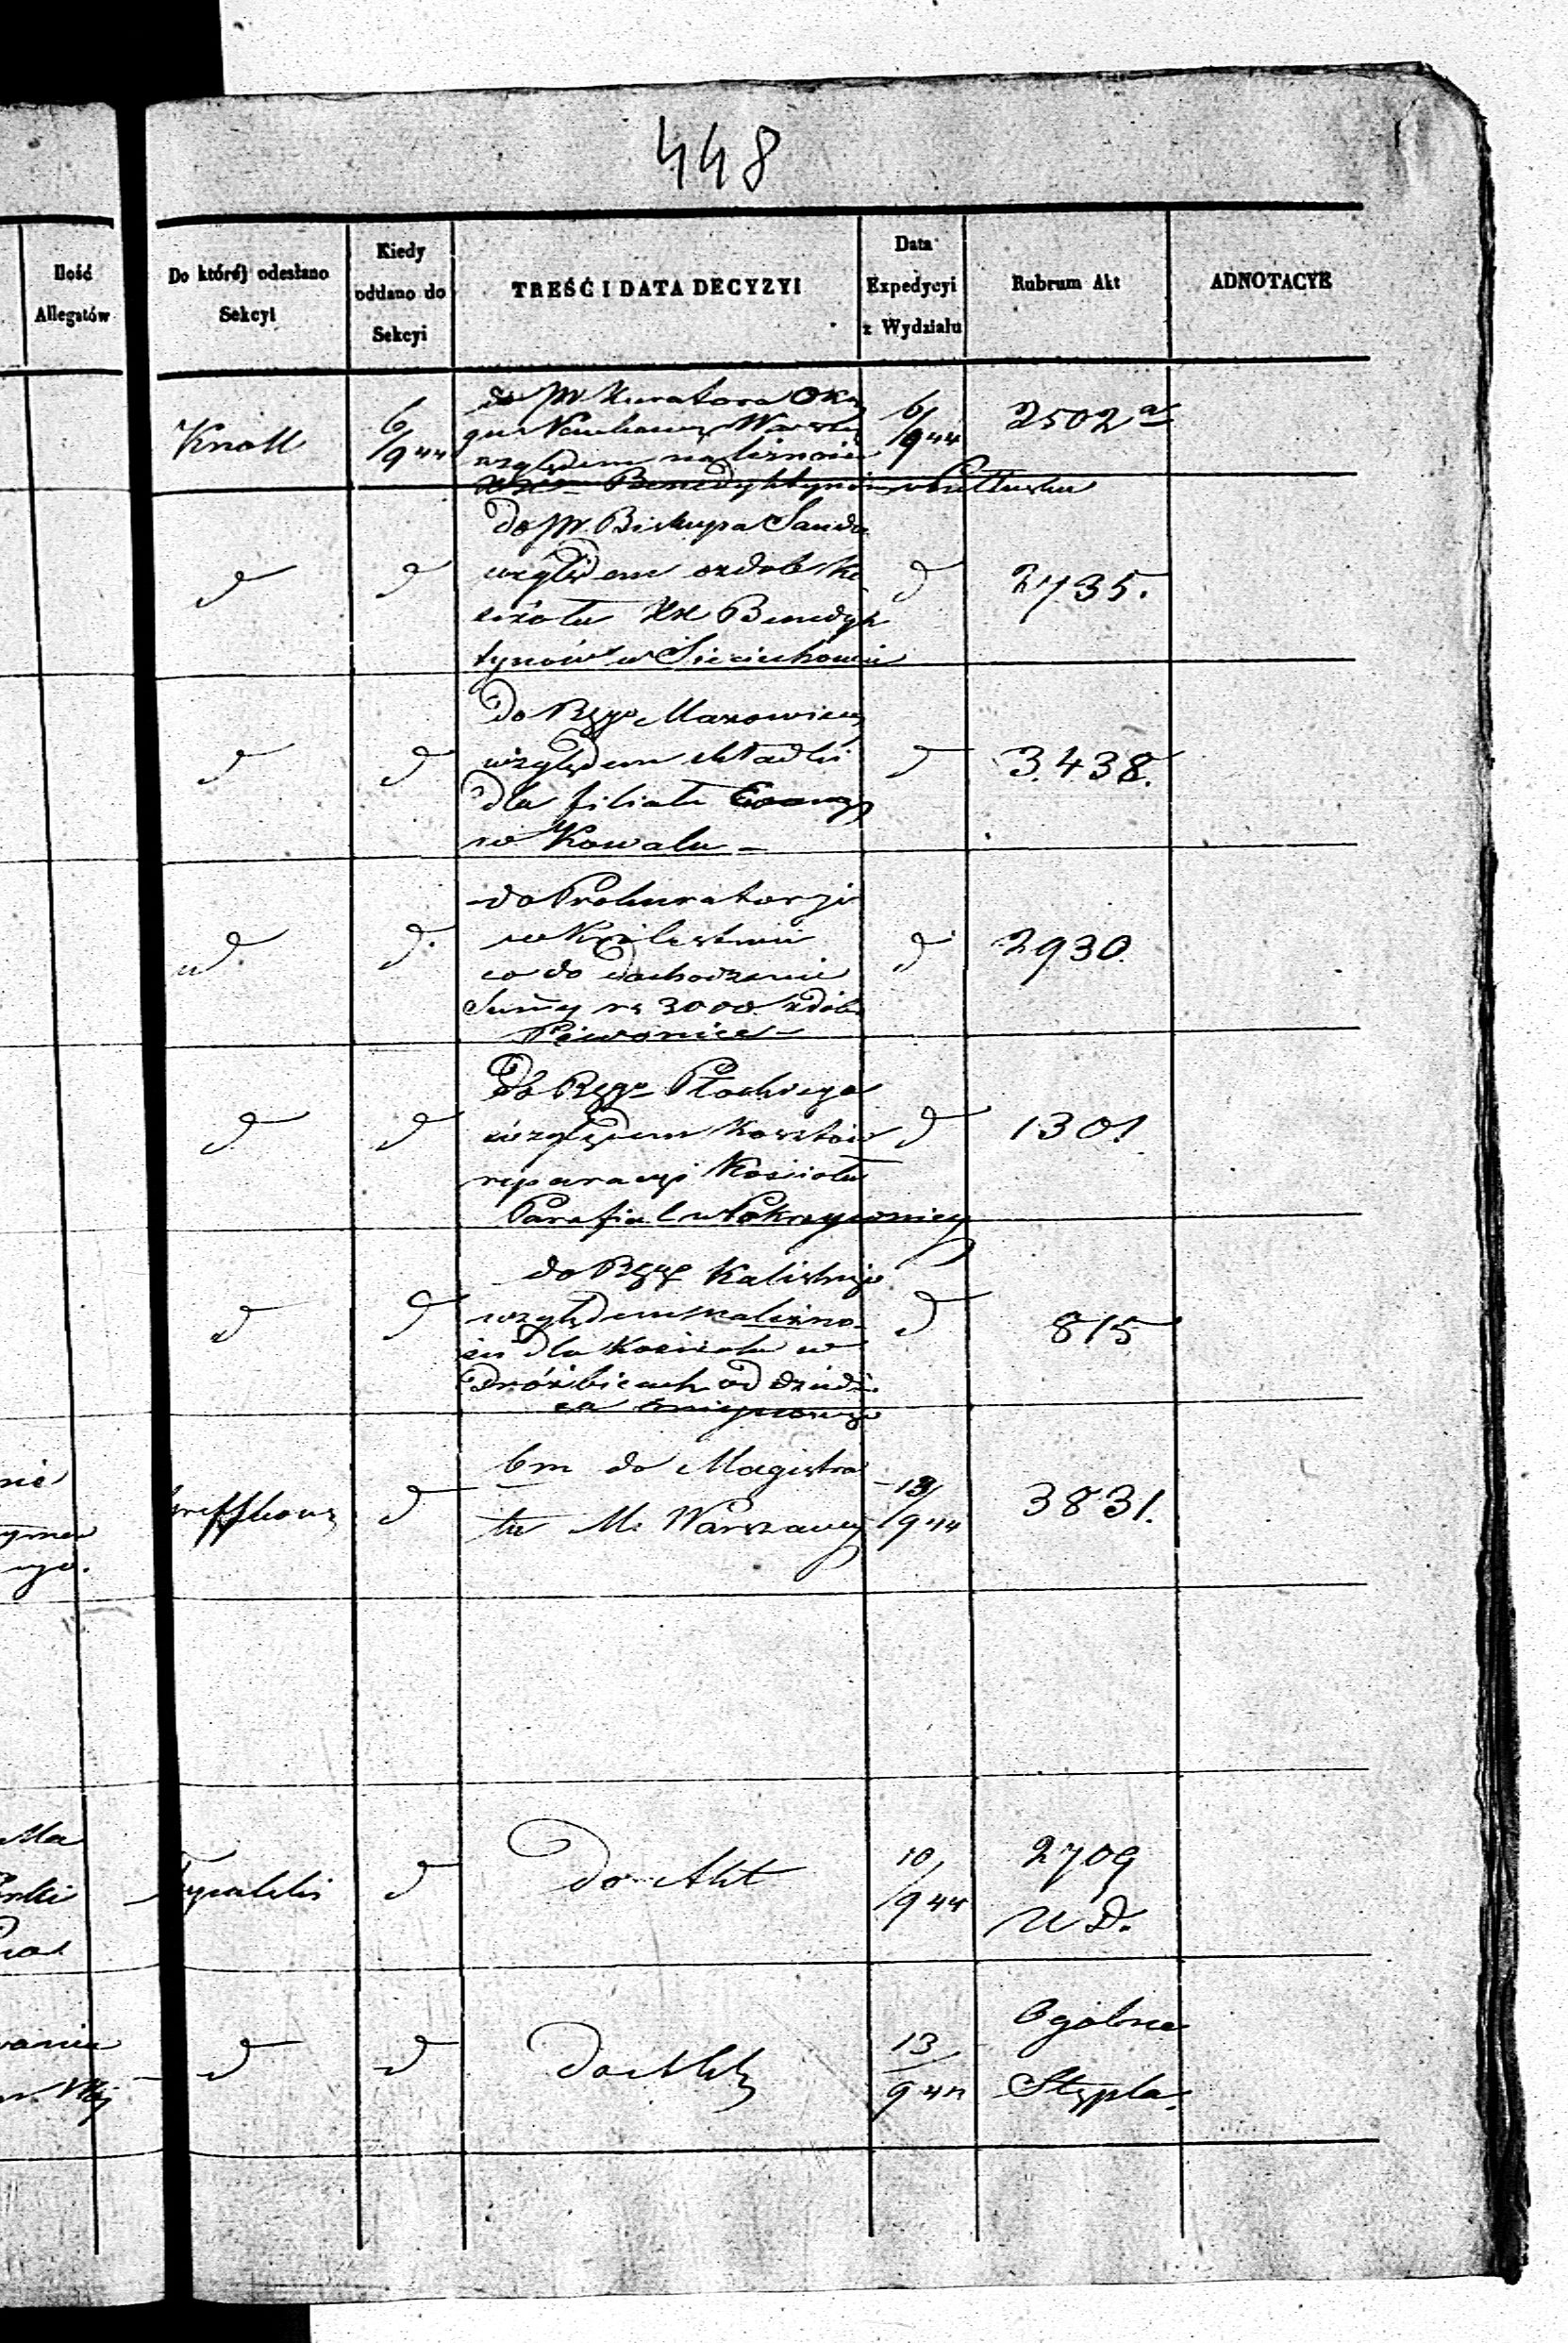 448
Ilość
Allegatów
Do któréj odesłano
Sekcyi
Kiedy
oddano do
Sekcyi
TREŚĆ I DATA DECYZYI
Data
Expedycyi
z Wydziału
Rubrum Akt
ADNOTACYE
Knoll
6/9 44
do JW Kuratora Okrę
gu Naukowego Warsz
względem należności
Benedyktynów w Pułtusku
6/9 44
2502 a
d
d
do JW. Biskupa Sando
względem ozdob ko
ścioła XX Benedyk
tynów w Sieciechowie
d
2735.
d
d
Do Rządu Mazowiec
względem składki
dla filiału Ewang
w Kowalu
d
3438.
d
d.
do Prokuratoryi
w Królestwie
co do dochodzenia
Summy rs 3000 z dóbr
Piwonice
d
2930
d
d
Do Rządu Płockiego
względem kosztów
reparacyi Kościoła
Parafial w Pokrzywnicy
d
1301
d
d
do Rządu Kaliskiego
względem należno-
ści dla Kościoła w
Dróżbicach od dziedzi
ca
d
815
d
6m do Magistra
tu M. Warszawy
13/9 44
3831.
nie
ego.
d
Do Akt
10/9 44
2709
U D.
d
d
Do Akt
13/9 44
Ogólne
Stępla.